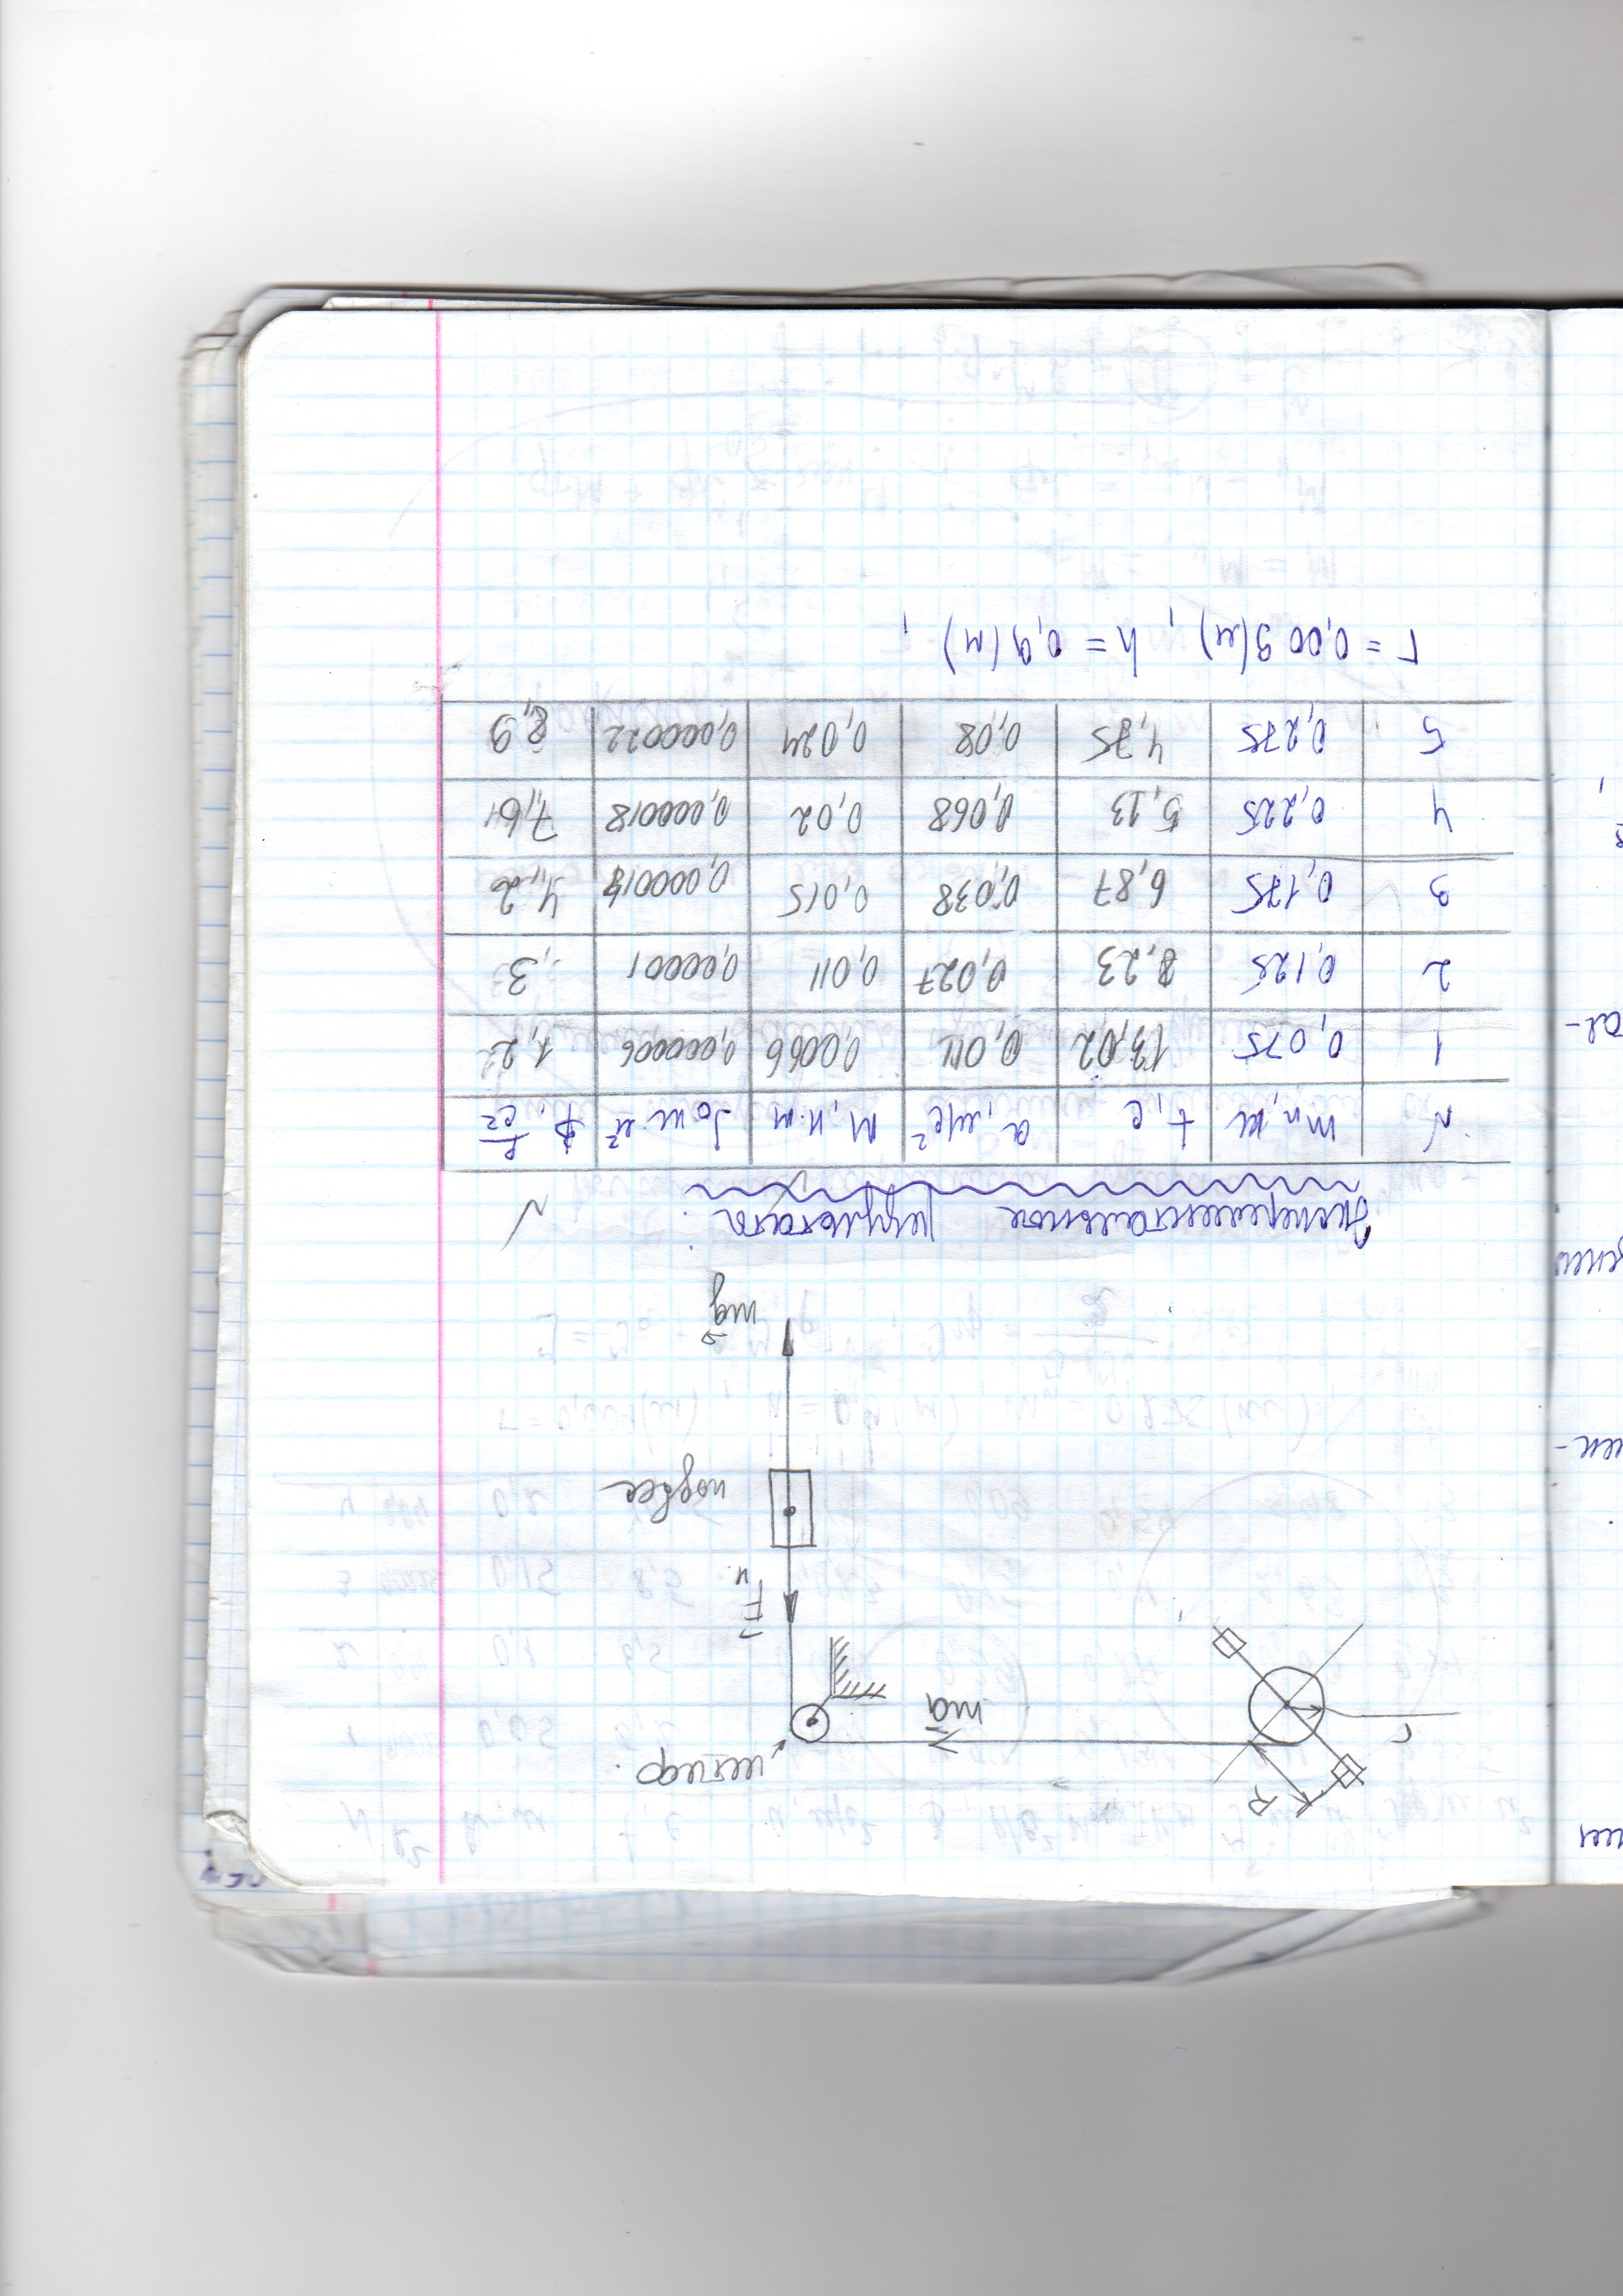 R
r
штиф.
ma
Fн.
подвес
mg
Эксперементальные результаты:
N mп, кг t, c a, м/с² M, н·м J₀ кг м² β, р/с²
1 0,075 13,02 0,011 0,0066 0,000006 1,2
2 0,125 8,23 0,027 0,011 0,00001 ,3
3 0,175 6,87 0,038 0,015 0,000014 4,2
4 0,225 5,13 0,068 0,02 0,000018 7,6
5 0,275 4,75 0,08 0,024 0,000022 8,9
r = 0,009(м), h = 0,9(м),